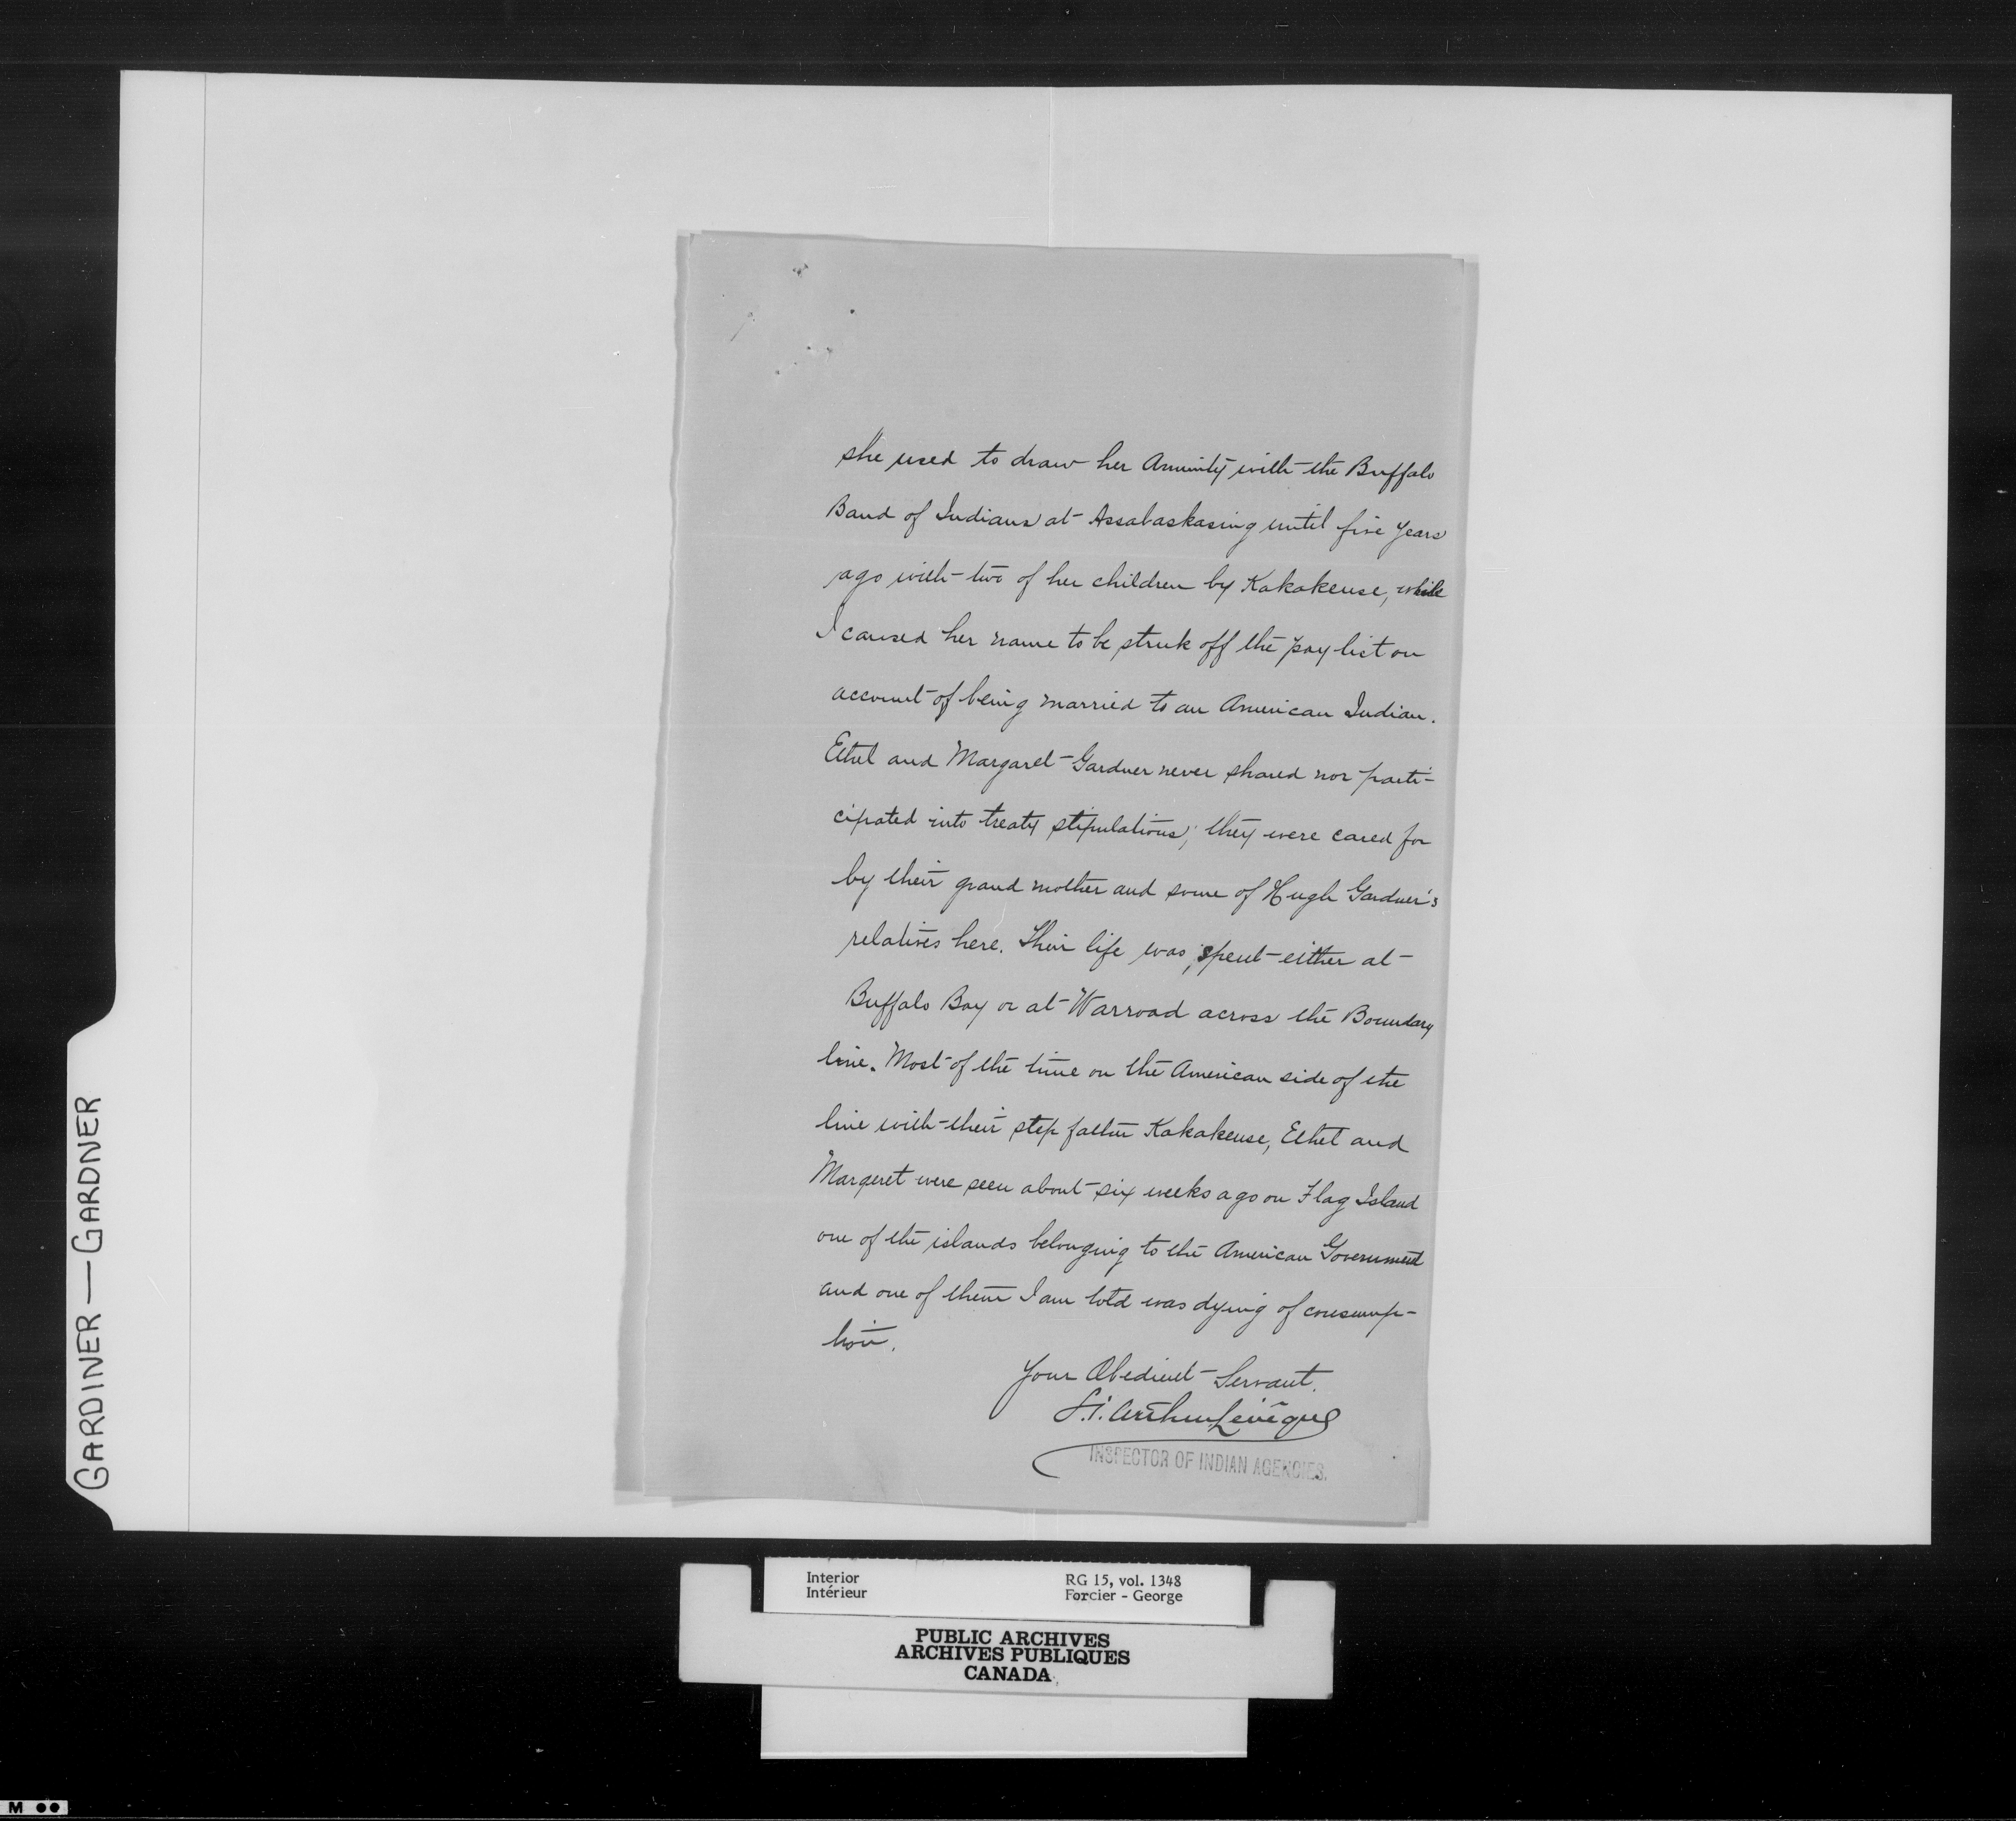 she used to draw her Annuity with the Buffalo
Band of Indians at Assabaskasing until five years
ago with two of her children by Kakakeuse, while
I caused her name to be struk off the pay list on
account of being married to an American Indian.
Ethel and Margaret Gardner never shared nor parti-
cipated into treaty stipulations; they were cared for
by their grand mother and some of Hugh Gardner's
relatives here. Their life was spent either at
Buffalo Bay or at Warroad across the Boundary
line. Most of the time on the American side of the
line with their step father Kakakeuse, Ethel and
Margeret were seen about six weeks ago on Flag Island
one of the islands belonging to the American Government
and one of them I am told was dying of consump-
tion.
Your Obedient Servant.
Arthur Levêque
INSPECTOR OF INDIAN AGENCIES.
GARDINER — GARDNER
Interior RG 15, vol. 1348
Intérieur Forcier - George
PUBLIC ARCHIVES
ARCHIVES PUBLIQUES
CANADA
M